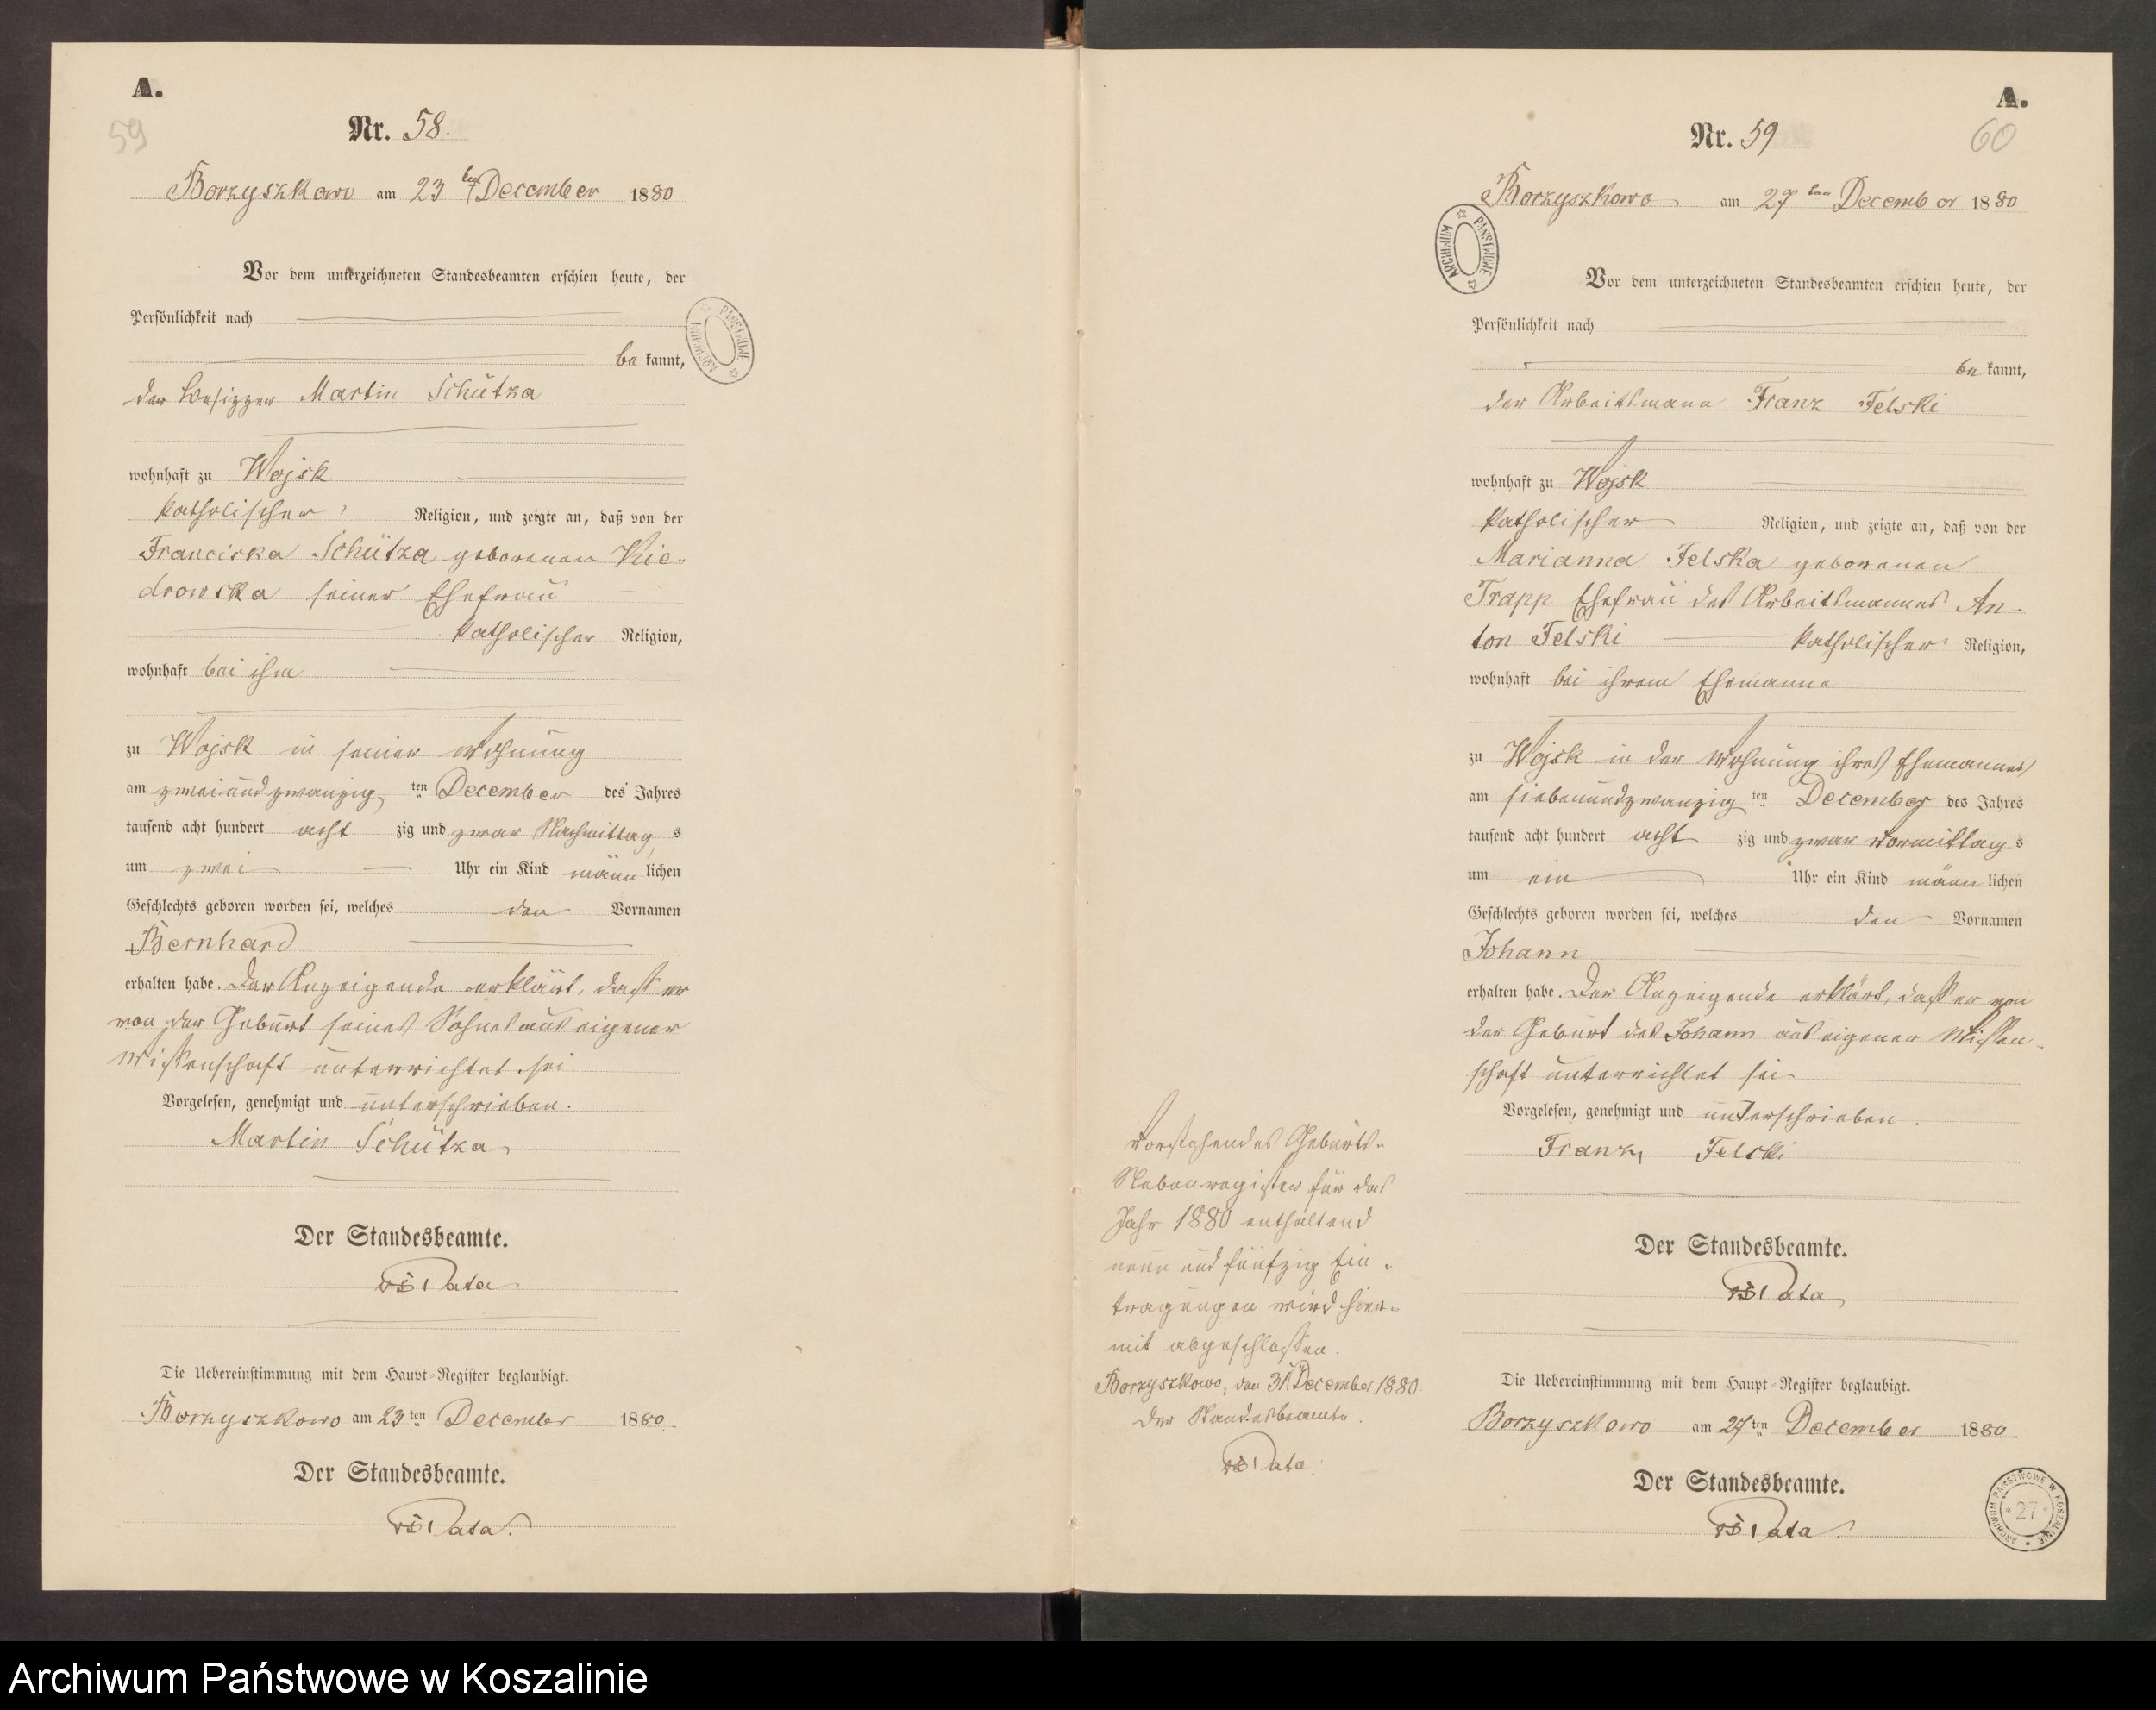 A.
59
Nr. 58.
Borzyszkowo am 23ten December 1880
Vor dem unterzeichneten Standesbeamten erschien heute, der
Persönlichkeit nach
be kannt,
der Besizzer Martin Schützka
wohnhaft zu Wojsk
katholischer Religion, und zeigte an, daß von der
Franciska Schützka geborenen Kie-
drowska seiner Ehefrau
katholischer Religion,
wohnhaft bei ihm
zu Wojsk in seiner Wohnung
am zweiundzwanzig ten December des Jahres
tausend acht hundert acht zig und zwar Nachmittag s
um zwei Uhr ein Kind männ lichen
Geschlechts geboren worden sei, welches den Vornamen
Bernhard
erhalten habe. Der Anzeigende erklärt, daß er
von der Geburt seines Sohnes aus eigener
Wissenschaft unterrichtet sei
Vorgelesen, genehmigt und unterschrieben.
Martin Schützka
Der Standesbeamte.
Pata
Die Uebereinstimmung mit dem Haupt-Register beglaubigt.
Borzyszkowo am 23ten December 1880
Der Standesbeamte.
Pata.
ARCHIWUM PAŃSTWOWE
A.
60
Nr. 59
Borzyszkowo am 27ten December 1880
ARCHIWUM PAŃSTWOWE
Vor dem unterzeichneten Standesbeamten erschien heute, der
Persönlichkeit nach
be kannt,
der Arbeitsmann Franz Felski
wohnhaft zu Wojsk
katholischer Religion, und zeigte an, daß von der
Marianna Felska geborenen
Trapp Ehefrau des Arbeitsmannes An-
ton Felski katholischer Religion,
wohnhaft bei ihrem Ehemanne
zu Wojsk in der Wohnung ihres Ehemannes
am siebenundzwanzig ten December des Jahres
tausend acht hundert acht zig und zwar Vormittag s
um ein Uhr ein Kind männ lichen
Geschlechts geboren worden sei, welches den Vornamen
Johann
erhalten habe. Der Anzeigende erklärt, daß er von
der Geburt des Johann aus eigener Wissen-
schaft unterrichtet sei
Vorgelesen, genehmigt und unterschrieben.
Franz Felski
Der Standesbeamte.
Pata
Die Uebereinstimmung mit dem Haupt-Register beglaubigt.
Borzyszkowo am 27ten December 1880
Der Standesbeamte.
Pata.
Vorstehendes Geburts-
Nebenregister für das
Jahr 1880 enthaltend
neun und fünfzig Ein-
tragungen wird hier-
mit abgeschlossen.
Borzyszkowo, den 31 December 1880.
Der Standesbeamte.
Pata.
ARCHIWUM PAŃSTWOWE W KOSZALINIE
27
Archiwum Państwowe w Koszalinie